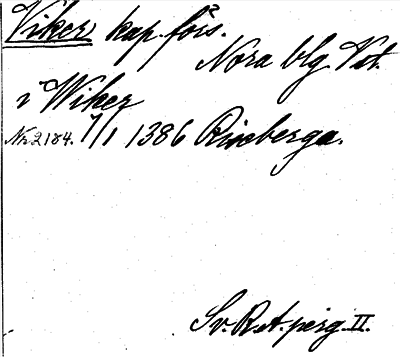 Viker kap. förs.
Nora blg. Vst.
i Wiker
Nr 2184. 7/1 1386 Riseberga.
Sv. R. A. perg. II.